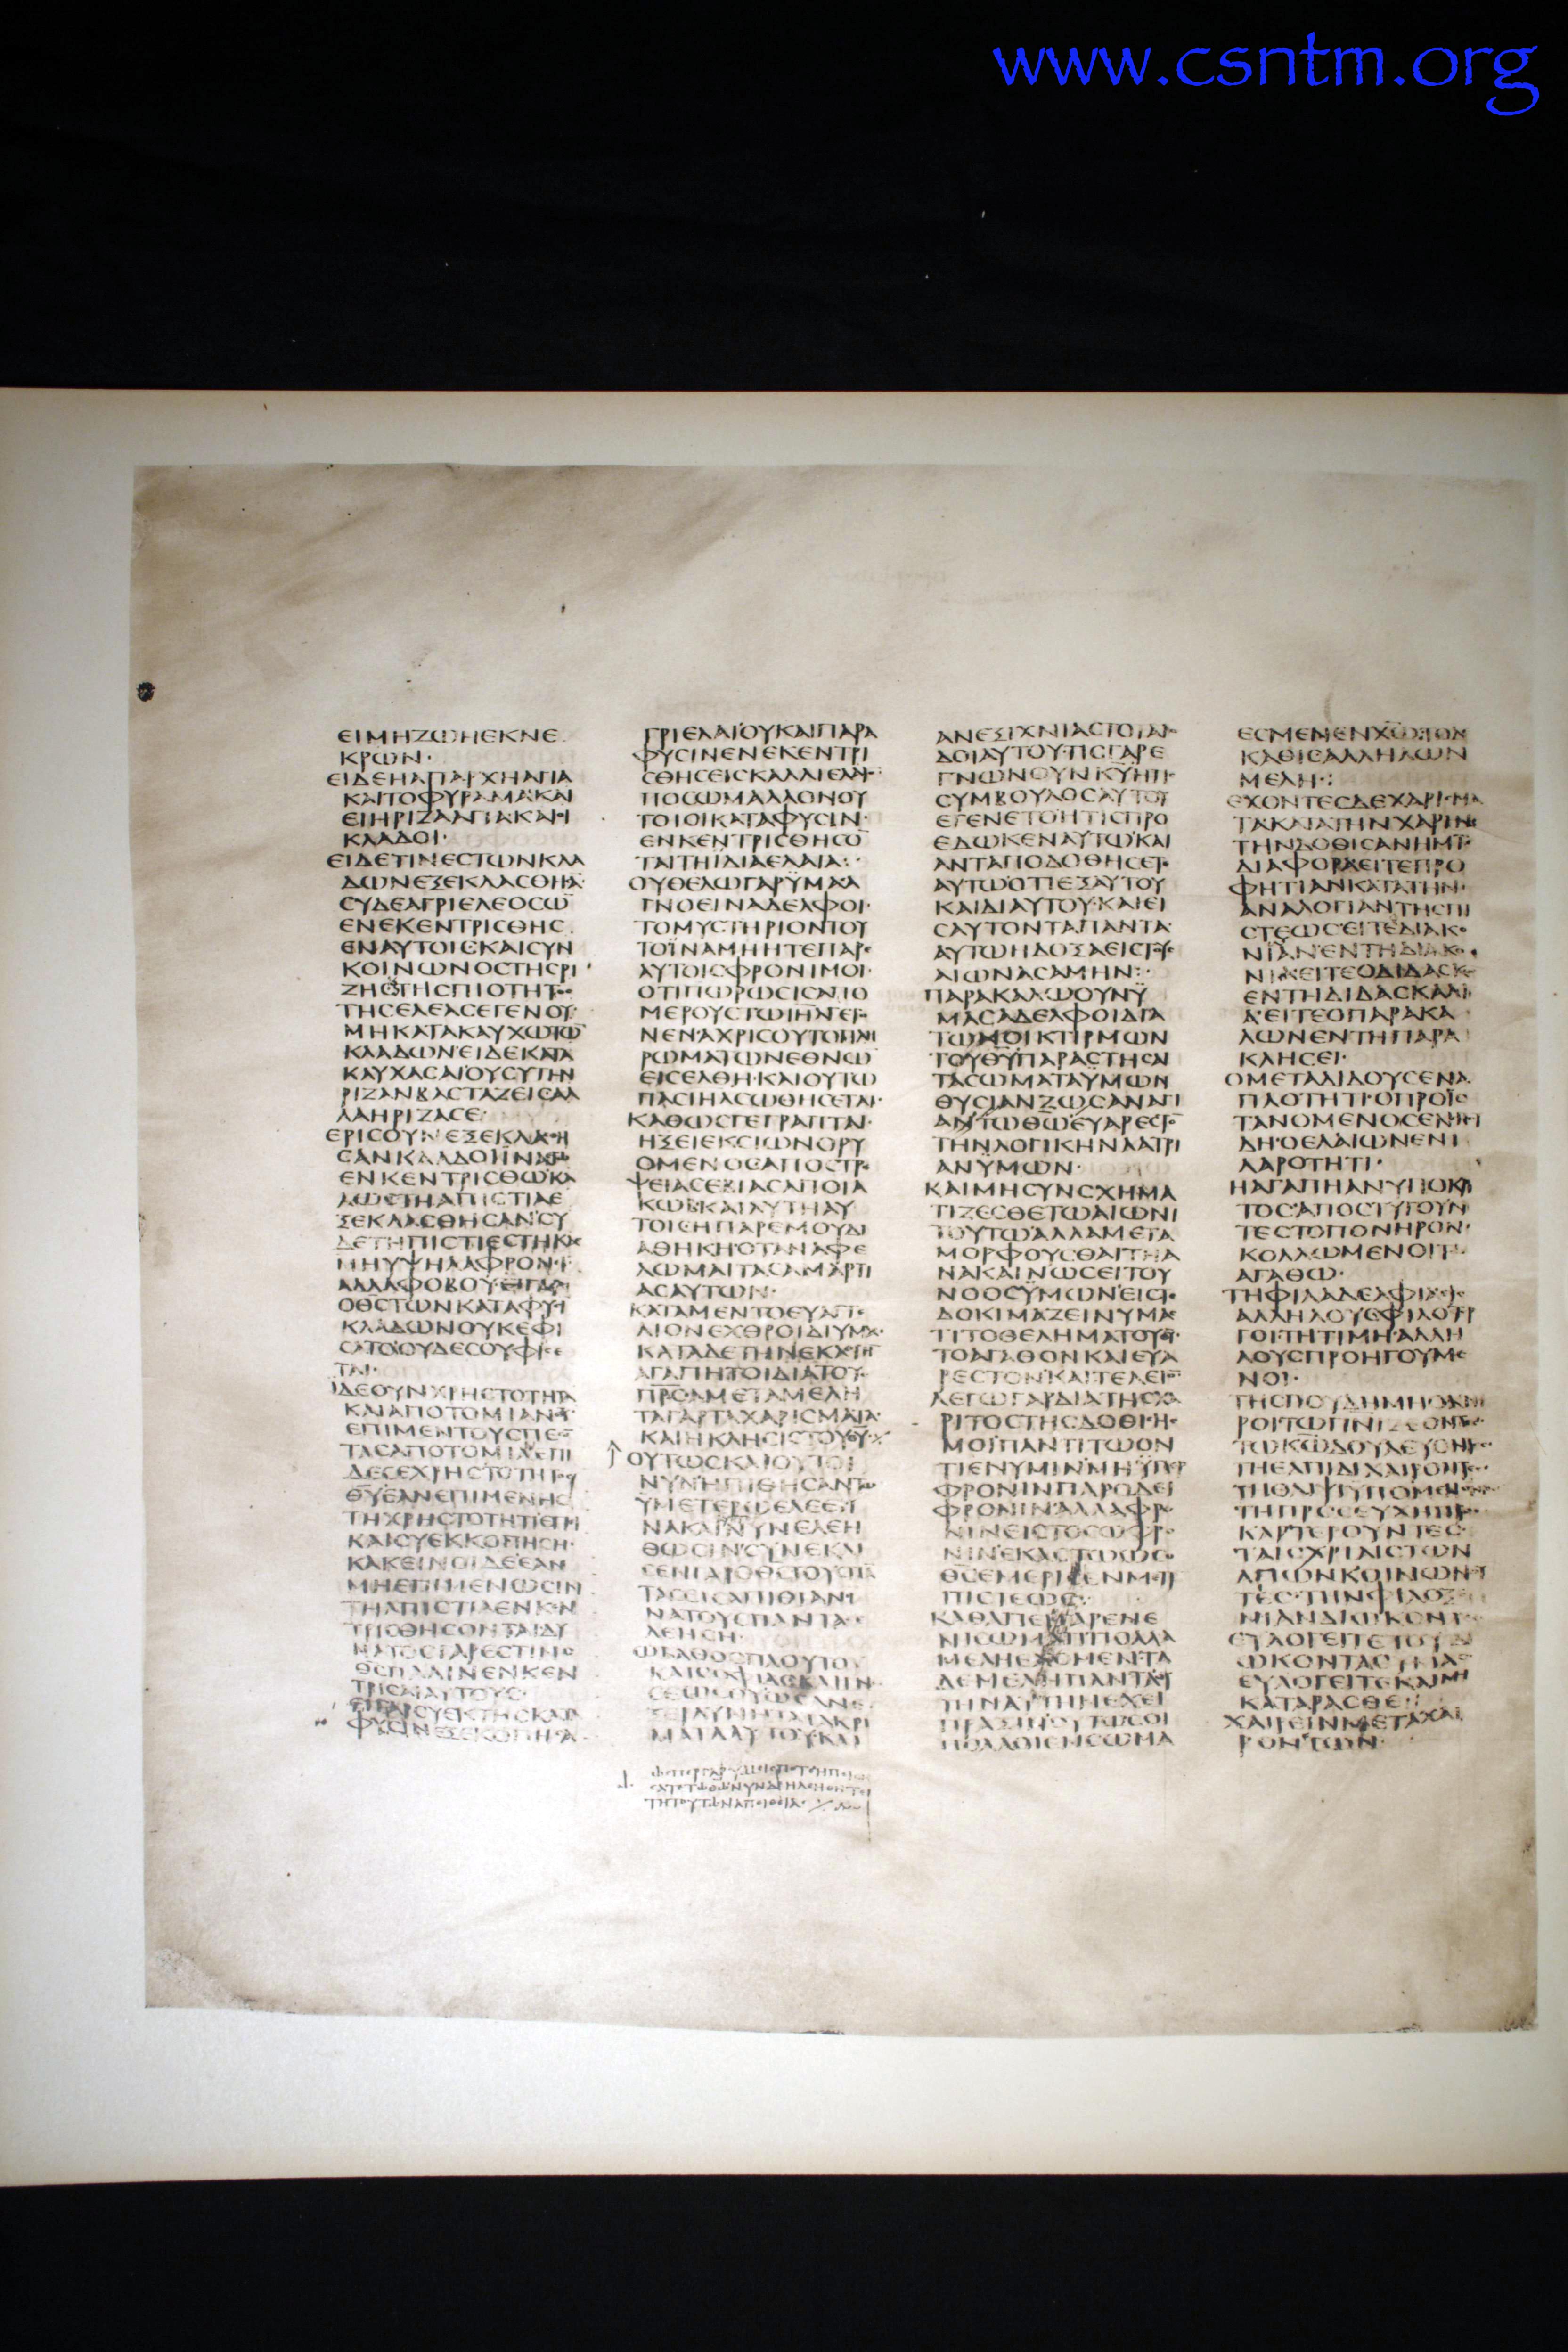 www.csntm.org
ΕΙΜΗΖΩΗΕΚΝΕ
ΚΡΩΝ·
ΕΙΔΕΗΑΠΑΡΧΗΑΓΙΑ
ΚΑΙΤΟΦΥΡΑΜΑΚΑΙ
ΕΙΗΡΙΖΑΑΓΙΑΚΑΙΟΙ
ΚΛΑΔΟΙ·
ΕΙΔΕΤΙΝΕΣΤΩΝΚΛΑ
ΔΩΝΕΞΕΚΛΑΣΘΗΣΑ
ΣΥΔΕΑΓΡΙΕΛΕΟΣΩ
ΕΝΕΚΕΝΤΡΙΣΘΗΣ
ΕΝΑΥΤΟΙΣΚΑΙΣΥΝ
ΚΟΙΝΩΝΟΣΤΗΣΡΙ
ΖΗΣΤΗΣΠΙΟΤΗΤΟΣ
ΤΗΣΕΛΕΑΣΕΓΕΝΟΥ
ΜΗΚΑΤΑΚΑΥΧΩΤΩ
ΚΛΑΔΩΝΕΙΔΕΚΑΤΑ
ΚΑΥΧΑΣΑΙΟΥΣΥΤΗΝ
ΡΙΖΑΝΒΑΣΤΑΖΕΙΣΑΛ
ΛΑΗΡΙΖΑΣΕ·
ΕΡΙΣΟΥΝΕΞΕΚΛΑΣΘΗ
ΣΑΝΚΛΑΔΟΙΙΝΑΕΓΩ
ΕΝΚΕΝΤΡΙΣΘΩΚΑ
ΛΩΣΤΗΑΠΙΣΤΙΑΕ
ΞΕΚΛΑΣΘΗΣΑΝΣΥ
ΔΕΤΗΠΙΣΤΙΕΣΤΗΚΑΣ
ΜΗΥΨΗΛΑΦΡΟΝΙ
ΑΛΛΑΦΟΒΟΥ·ΕΙΓΑΡ
ΟΘΣΤΩΝΚΑΤΑΦΥΣΙ
ΚΛΑΔΩΝΟΥΚΕΦΙ
ΣΑΤΟΟΥΔΕΣΟΥΦΙΣΕ
ΤΑΙ·
ΙΔΕΟΥΝΧΡΗΣΤΟΤΗΤΑ
ΚΑΙΑΠΟΤΟΜΙΑΝΘΥ
ΕΠΙΜΕΝΤΟΥΣΠΕΣ
ΤΑΣΑΠΟΤΟΜΙΑΕΠΙ
ΔΕΣΕΧΡΗΣΤΟΤΗΣ
ΘΥΕΑΝΕΠΙΜΕΝΗΣ
ΤΗΧΡΗΣΤΟΤΗΤΙΕΠΙ
ΚΑΙΣΥΕΚΚΟΠΗΣΗ·
ΚΑΚΕΙΝΟΙΔΕΕΑΝ
ΜΗΕΠΙΜΕΝΩΣΙΝ
ΤΗΑΠΙΣΤΙΑΕΝΚΕΝ
ΤΡΙΣΘΗΣΟΝΤΑΙΔΥ
ΝΑΤΟΣΓΑΡΕΣΤΙΝΟ
ΘΣΠΑΛΙΝΕΝΚΕΝ
ΤΡΙΣΑΙΑΥΤΟΥΣ·
ΕΙΓΑΡΣΥΕΚΤΗΣΚΑΤΑ
ΦΥΣΙΝΕΞΕΚΟΠΗΣΑ
ΓΡΙΕΛΑΙΟΥΚΑΙΠΑΡΑ
ΦΥΣΙΝΕΝΕΚΕΝΤΡΙ
ΣΘΗΣΕΙΣΚΑΛΛΙΕΛΑΙ
ΠΟΣΩΜΑΛΛΟΝΟΥ
ΤΟΙΟΙΚΑΤΑΦΥΣΙΝ·
ΕΝΚΕΝΤΡΙΣΘΗΣΟ
ΤΑΙΤΗΙΔΙΑΕΛΑΙΑ:
ΟΥΘΕΛΩΓΑΡΫΜΑΣΑ
ΓΝΟΕΙΝΑΔΕΛΦΟΙ·
ΤΟΜΥΣΤΗΡΙΟΝΤΟΥ
ΤΟΪΝΑΜΗΗΤΕΠΑΡ
ΑΥΤΟΙΣΦΡΟΝΙΜΟΙ·
ΟΤΙΠΩΡΩΣΙΣΑΠΟ
ΜΕΡΟΥΣΤΩΙΗΛΓΕΓΟ
ΝΕΝΑΧΡΙΣΟΥΤΟΠΛΗ
ΡΩΜΑΤΩΝΕΘΝΩ
ΕΙΣΕΛΘΗ·ΚΑΙΟΥΤΩ
ΠΑΣΙΗΛΣΩΘΗΣΕΤΑΙ·
ΚΑΘΩΣΓΕΓΡΑΠΤΑΙ·
ΗΞΕΙΕΚΣΙΩΝΟΡΥ
ΟΜΕΝΟΣΑΠΟΣΤΡΕ
ΨΕΙΑΣΕΒΙΑΣΑΠΟΙΑ
ΚΩΒΚΑΙΑΥΤΗΑΥ
ΤΟΙΣΗΠΑΡΕΜΟΥΔΙ
ΑΘΗΚΗΟΤΑΝΑΦΕ
ΛΩΜΑΙΤΑΣΑΜΑΡΤΙ
ΑΣΑΥΤΩΝ·
ΚΑΤΑΜΕΝΤΟΕΥΑΓΓΕ
ΛΙΟΝΕΧΘΡΟΙΔΙΥΜΑΣ
ΚΑΤΑΔΕΤΗΝΕΚΛΟΓΗ
ΑΓΑΠΗΤΟΙΔΙΑΤΟΥΣ
ΠΡΣΑΜΕΤΑΜΕΛΗ
ΤΑΓΑΡΤΑΧΑΡΙΣΜΑΤΑ·
ΚΑΙΗΚΛΗΣΙΣΤΟΥΘΥ
ΟΥΤΩΣΚΑΙΟΥΤΟΙ
ΝΥΝΗΠΙΘΗΣΑΝΤΩ
ΥΜΕΤΕΡΩΕΛΕΕΙΪ
ΝΑΚΑΙΝΥΝΕΛΕΗ
ΘΩΣΙΝΣΥΝΕΚΛΙ
ΣΕΝΓΑΡΟΘΣΤΟΥΣΠΑ
ΤΑΣΕΙΣΑΠΙΘΙΑΝΙ
ΝΑΤΟΥΣΠΑΝΤΑΣ
ΛΕΗΣΗ·
ΩΒΑΘΟΣΠΛΟΥΤΟΥ
ΚΑΙΣΟΦΙΑΣΚΑΙΓΝ
ΣΕΩΣΘΥΩΣΑΝΕ
ΞΕΡΑΥΝΗΤΑΤΑΚΡΙ
ΜΑΤΑΑΥΤΟΥΚΑΙ
ΑΝΕΞΙΧΝΙΑΣΤΟΙΑΙΟ
ΔΟΙΑΥΤΟΥ·ΤΙΣΓΑΡΕ
ΓΝΩΝΟΥΝΚΥΗΤΙΣ
ΣΥΜΒΟΥΛΟΣΑΥΤΟΥ
ΕΓΕΝΕΤΟΗΤΙΣΠΡΟ
ΕΔΩΚΕΝΑΥΤΩΚΑΙ
ΑΝΤΑΠΟΔΟΘΗΣΕΤΑΙ
ΑΥΤΩΟΤΙΕΞΑΥΤΟΥ
ΚΑΙΔΙΑΥΤΟΥ·ΚΑΙΕΙ
ΣΑΥΤΟΝΤΑΠΑΝΤΑ·
ΑΥΤΩΗΔΟΞΑΕΙΣΤΟΥΣ
ΑΙΩΝΑΣΑΜΗΝ:
ΠΑΡΑΚΑΛΩΟΥΝΫ
ΜΑΣΑΔΕΛΦΟΙΔΙΑ
ΤΩΝΟΙΚΤΙΡΜΩΝ
ΤΟΥΘΥΠΑΡΑΣΤΗΣΑΙ
ΤΑΣΩΜΑΤΑΥΜΩΝ
ΘΥΣΙΑΝΖΩΣΑΝΑΓΙ
ΑΝΤΩΘΩΕΥΑΡΕΣΤΟ
ΤΗΝΛΟΓΙΚΗΝΛΑΤΡΙ
ΑΝΫΜΩΝ·
ΚΑΙΜΗΣΥΝΣΧΗΜΑ
ΤΙΖΕΣΘΕΤΩΑΙΩΝΙ
ΤΟΥΤΩΑΛΛΑΜΕΤΑ
ΜΟΡΦΟΥΣΘΑΙΤΗΑ
ΝΑΚΑΙΝΩΣΕΙΤΟΥ
ΝΟΟΣΫΜΩΝΕΙΣΤΟ
ΔΟΚΙΜΑΖΕΙΝΥΜΑΣ
ΤΙΤΟΘΕΛΗΜΑΤΟΥΘΥ
ΤΟΑΓΑΘΟΝΚΑΙΕΥΑ
ΡΕΣΤΟΝΚΑΙΤΕΛΕΙΟ
ΛΕΓΩΓΑΡΔΙΑΤΗΣΧΑ
ΡΙΤΟΣΤΗΣΔΟΘΙΣΗΣ
ΜΟΙΠΑΝΤΙΤΩΟΝ
ΤΙΕΝΥΜΙΝΜΗΫΠΕΡ
ΦΡΟΝΙΝΠΑΡΟΔΕΙ
ΦΡΟΝΙΝΑΛΛΑΦΡΟ
ΝΙΝΕΙΣΤΟΣΩΦΡΟ
ΝΙΝΕΚΑΣΤΩΩΣΟ
ΘΣΕΜΕΡΙΣΕΝΜΕΤΡ
ΠΙΣΤΕΩΣ·
ΚΑΘΑΠΕΡΓΑΡΕΝΕ
ΝΙΣΩΜΑΤΙΠΟΛΛΑ
ΜΕΛΗΕΧΟΜΕΝΤΑ
ΔΕΜΕΛΗΠΑΝΤΑΟΥ
ΤΗΝΑΥΤΗΝΕΧΕΙ
ΠΡΑΞΙΝΟΥΤΩΣΟΙ
ΠΟΛΛΟΙΕΝΣΩΜΑ
ΕΣΜΕΝΕΝΧΩΤΟΔΕ
ΚΑΘΙΣΑΛΛΗΛΩΝ
ΜΕΛΗ·:
ΕΧΟΝΤΕΣΔΕΧΑΡΙΣΜΑ
ΤΑΚΑΤΑΤΗΝΧΑΡΙΝ
ΤΗΝΔΟΘΙΣΑΝΗΜΙ
ΔΙΑΦΟΡΑΕΙΤΕΠΡΟ
ΦΗΤΙΑΝΚΑΤΑΤΗΝ·
ΑΝΑΛΟΓΙΑΝΤΗΣΠΙ
ΣΤΕΩΣΕΙΤΕΔΙΑΚΟ
ΝΙΑΝΕΝΤΗΔΙΑΚΟ
ΝΙΑΕΙΤΕΟΔΙΔΑΣΚΩ
ΕΝΤΗΔΙΔΑΣΚΑΛΙ
Α·ΕΙΤΕΟΠΑΡΑΚΑ
ΛΩΝΕΝΤΗΠΑΡΑ
ΚΛΗΣΕΙ·
ΟΜΕΤΑΔΙΔΟΥΣΕΝΑ
ΠΛΟΤΗΤΙ·ΟΠΡΟΪΣ
ΤΑΝΟΜΕΝΟΣΕΝΣΠΟΥ
ΔΗ·ΟΕΛΑΙΩΝΕΝΙ
ΛΑΡΟΤΗΤΙ·
ΗΑΓΑΠΗΑΝΥΠΟΚΡΙ
ΤΟΣΑΠΟΣΤΥΓΟΥΝ
ΤΕΣΤΟΠΟΝΗΡΟΝ·
ΚΟΛΛΩΜΕΝΟΙΤΩ
ΑΓΑΘΩ·
ΤΗΦΙΛΑΔΕΛΦΙΑΕΙΣ
ΑΛΛΗΛΟΥΣΦΙΛΟΣΤΡ
ΓΟΙΤΗΤΙΜΗΑΛΛΗ
ΛΟΥΣΠΡΟΗΓΟΥΜΕ
ΝΟΙ·
ΤΗΣΠΟΥΔΗΜΗΟΚΝΗ
ΡΟΙΤΩΠΝΙΖΕΟΝΤΕΣ
ΤΩΚΩΔΟΥΛΕΥΟΝΤΕΣ
ΤΗΕΛΠΙΔΙΧΑΙΡΟΝΤΕΣ
ΤΗΘΛΙΨΙΥΠΟΜΕΝΟΝΤΕΣ
ΤΗΠΡΟΣΕΥΧΗΠΡΟΣ
ΚΑΡΤΕΡΟΥΝΤΕΣ·
ΤΑΙΣΧΡΙΑΙΣΤΩΝ
ΑΓΙΩΝΚΟΙΝΩΝΟΥ
ΤΕΣ·ΤΗΝΦΙΛΟΞΕ
ΝΙΑΝΔΙΩΚΟΝΤΕΣ
ΕΥΛΟΓΕΙΤΕΤΟΥΣΔΙ
ΩΚΟΝΤΑΣΥΜΑΣ
ΕΥΛΟΓΕΙΤΕΚΑΙΜΗ
ΚΑΤΑΡΑΣΘΕ·:
ΧΑΙΡΕΙΝΜΕΤΑΧΑΙ
ΡΟΝΤΩΝ·